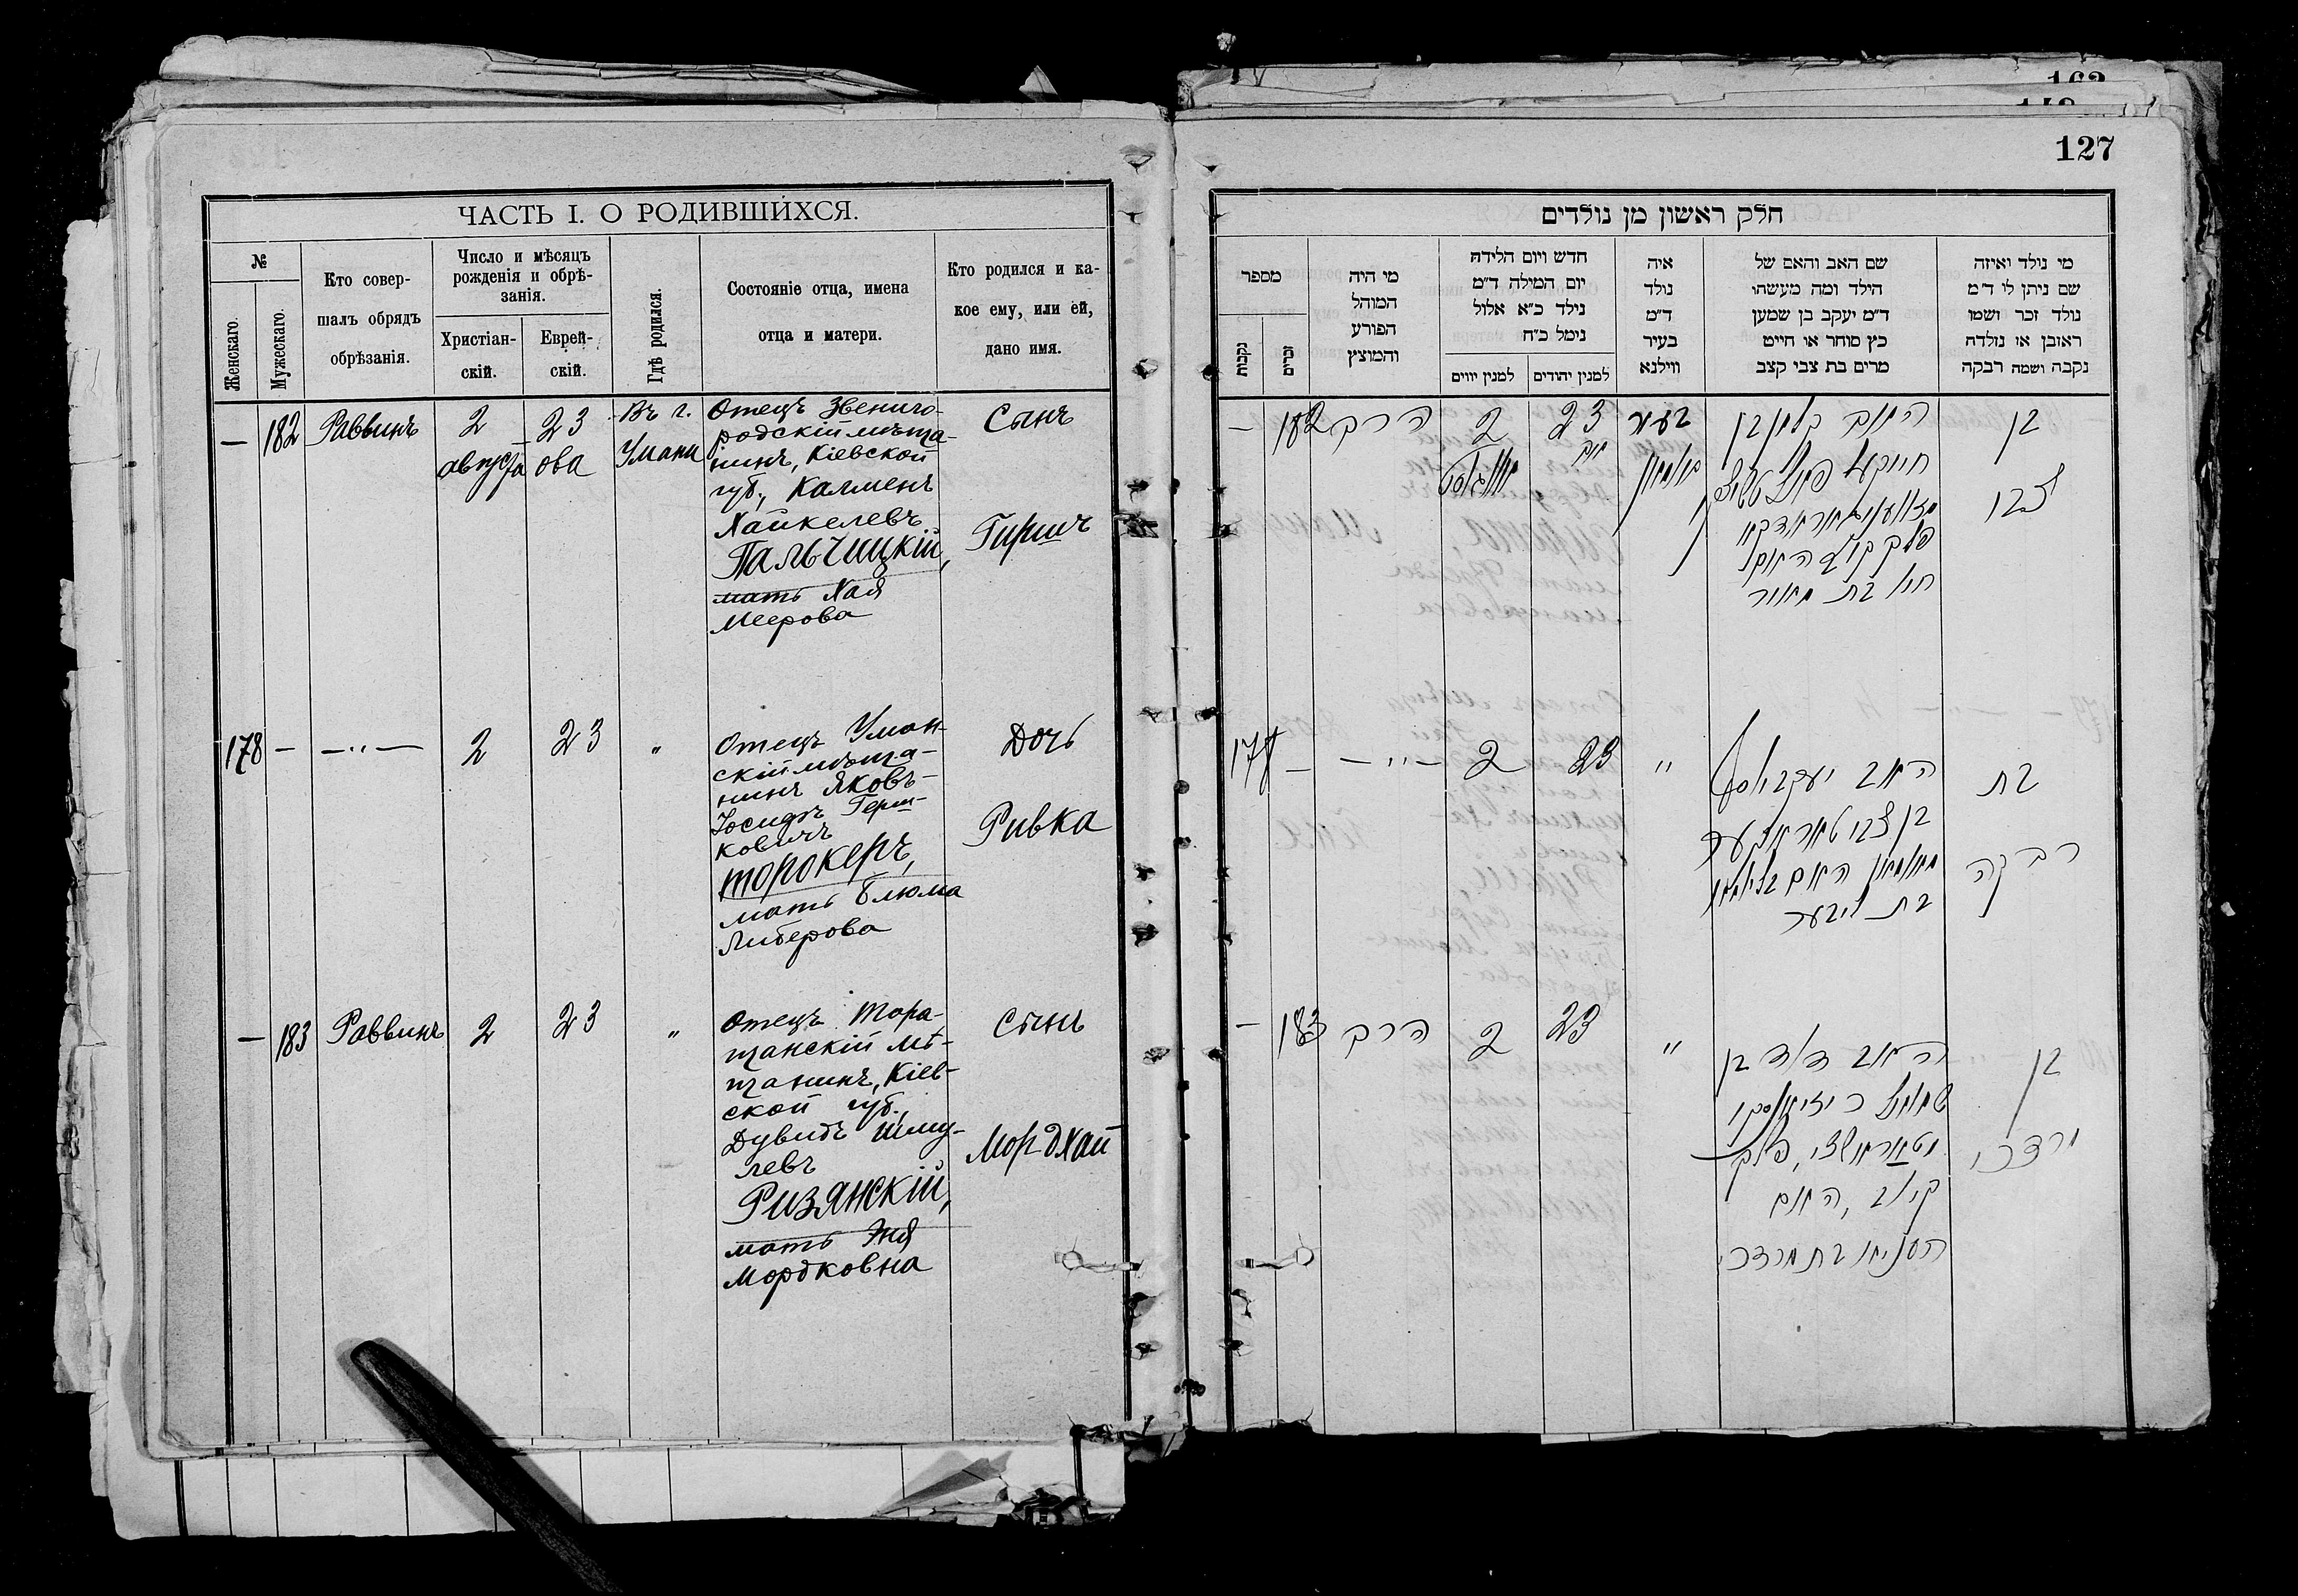 ЧАСТЬ I. О РОДИВШИХСЯ.
№
Женскаго.
Мужескаго.
Кто совер-
шалъ обрядъ
обрѣзанія.
Число и мѣсяцъ
рожденія и обрѣ-
занія.
Христіан-
скій.
Еврей-
скій.
Гдѣ родился.
Состояніе отца, имена
отца и матери.
Кто родился и ка-
кое ему, или ей,
дано имя.
— 182 Раввинъ
2
августа
23
ова
Въ г.
Умани
Отецъ Звениго-
родскій мѣща-
нинъ, Кіевской
губ., Калменъ
Хайкелевъ
Пальчицкій,
мать Хая
Меерова
Сынъ
Гиршъ
178 — — " — 2 23 "
Отецъ Уман-
скій мѣща-
нинъ Яковъ-
Іосифъ Герш-
ковичъ
Торокеръ,
мать Блюма
Либерова
Дочь
Ривка
— 183 Раввинъ 2 23 "
Отецъ Тора-
щанскій мѣ-
щанинъ, Кіев-
ской губ.,
Дувидъ Шму-
левъ
Ризянскій,
мать Эня
Мордковна
Сынъ
Мордхай
163
127
חלק ראשון מן נולדים
מספר
נקבות
זכרים
מי היה
המוהל
הפורע
והמוצץ
חדש ויום הלידה
יום המילה ד״מ
נילד כ״א אלול
נימל כ״ח
למנין יווים
למנין יהודים
איה
נולד
ד״מ
בעיר
ווילנא
שם האב והאם של
הילד ומה מעשהו
ד״מ יעקב בן שמען
כץ סוחר או חייט
מרים בת צבי קצב
מי נילד ואיזה
שם ניתן לו ד״מ
נולד זכר ושמו
ראובן או נולדה
נקבה ושמה רבקה
— 182 הרב
2
אווגוסט
23
בעיר
אומאן
האב קלמן בן
חייקעל
חיה בת מאיר
בן
צבי
178 — — " — 2 23 "
האב יעקב יוסף
בן צבי
בת ליבער
בת
רבקה
— 183 הרב 2 23 "
האב דוד בן
שמואל
פלך
קיוב, האם
בת מרדכי
בן